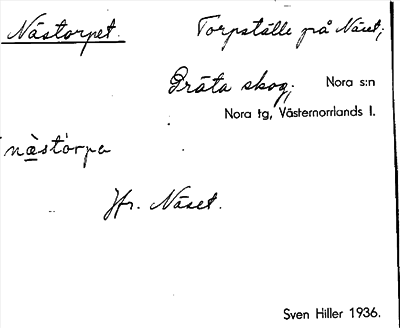 Nästorpet. Torpställe på Näset;
Präta skog; Nora s:n
Nora tg, Västernorrlands l.
næ̀stòrpa
Jfr. Näset.
Sven Hiller 1936.